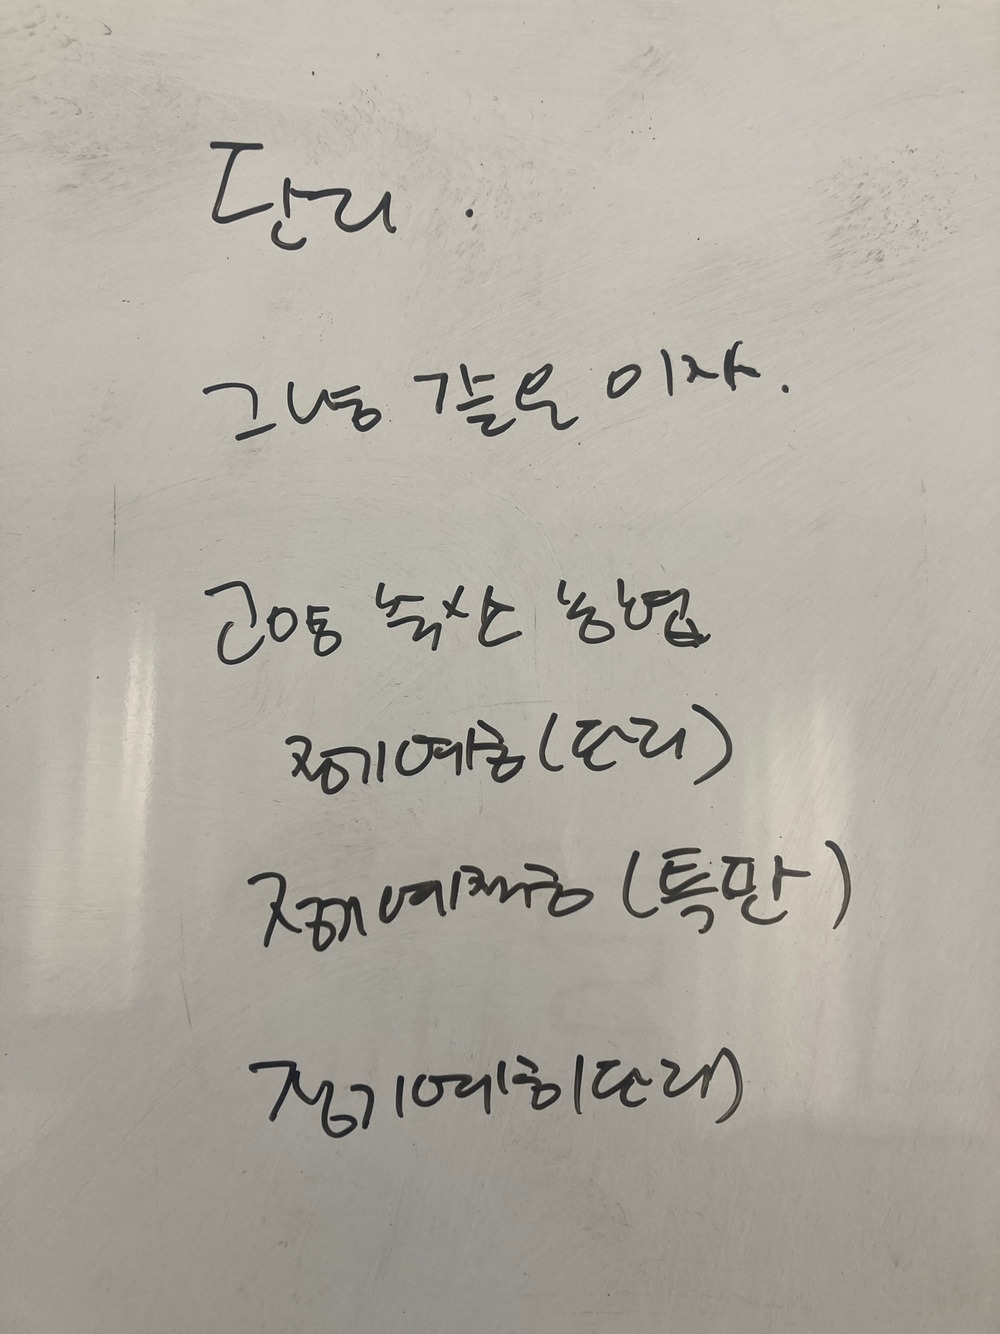 단리.
그냥 같은 이자.
고양 축산 농협
정기예금(단리)
정기예적금(특판)
정기예금(단리)